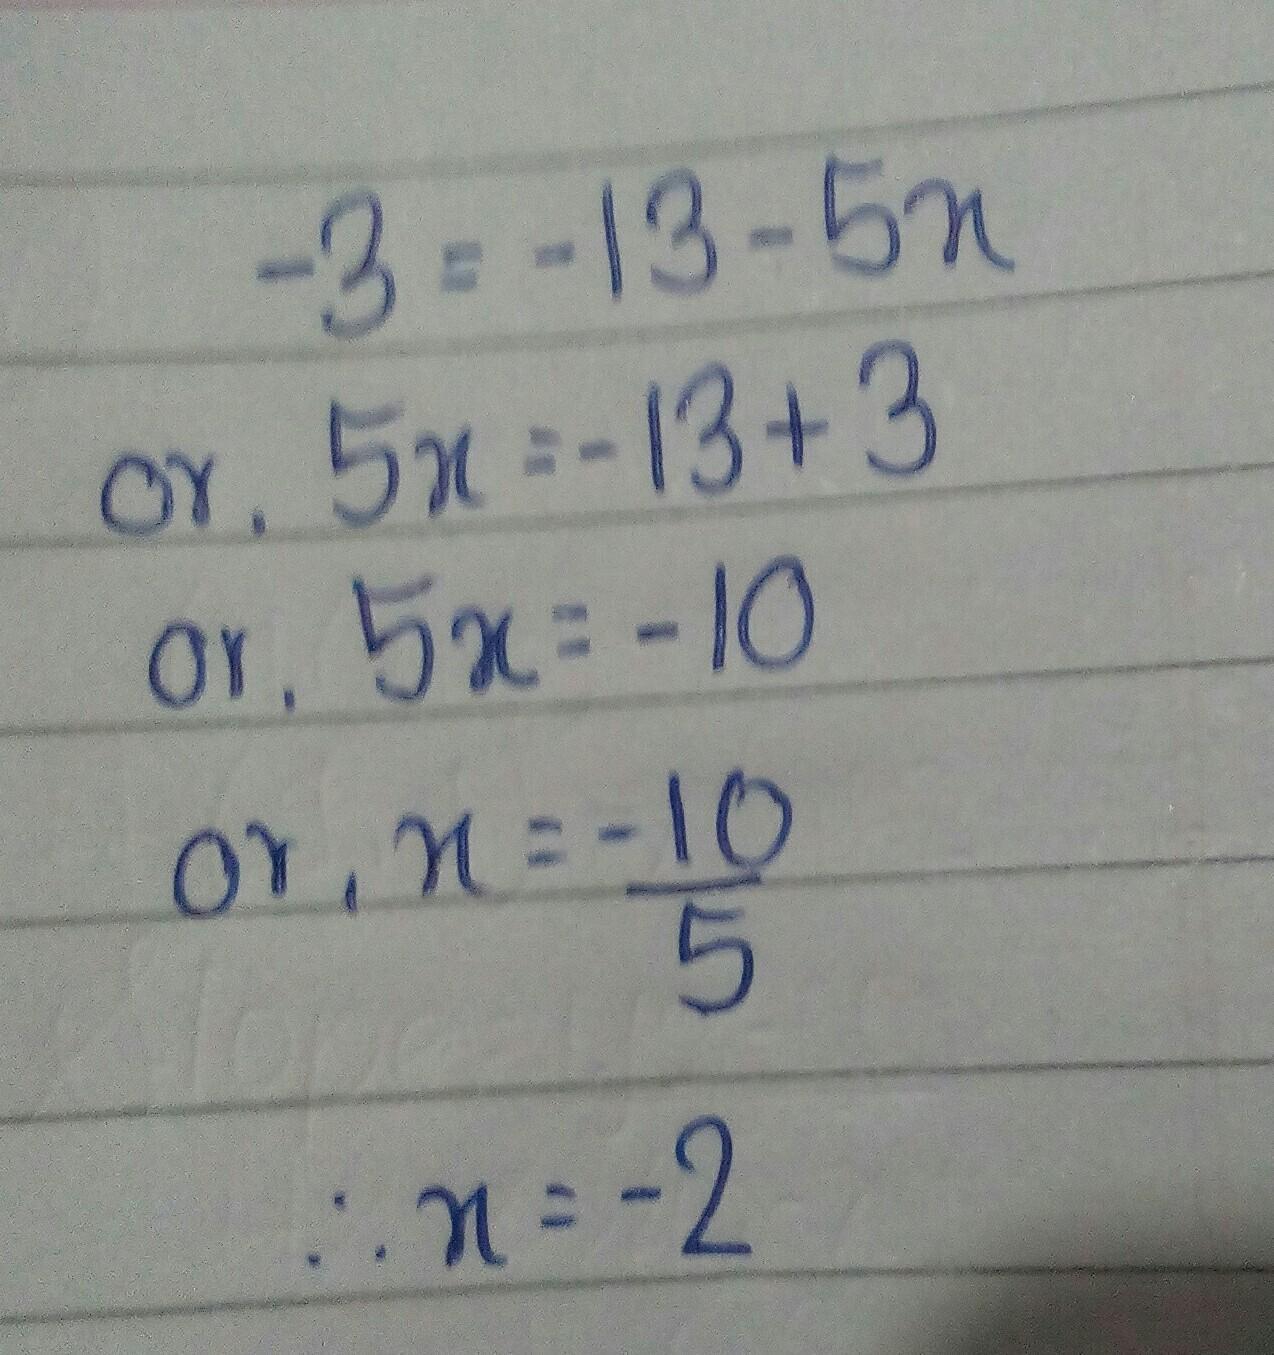 -3 = -13 - 5x
or, 5x = -13 + 3
or, 5x = -10
or, x = -10/5
∴ x = -2